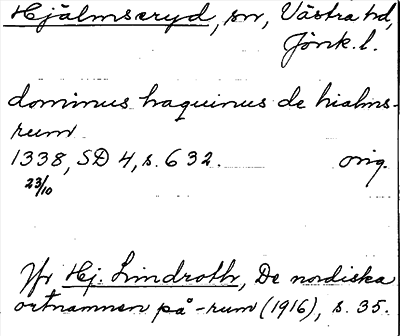 Hjälmseryd, sn, Västra hd,
Jönk. l.
dominus haquinus de hialms-
rum
1338, SD 4, s. 632. orig.
23/10
Jfr Hj. Lindroth, De nordiska
ortnamnen på -rum (1916), s. 35.